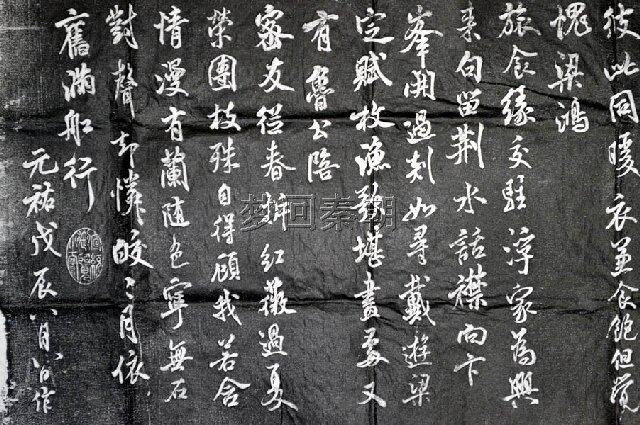 彼此同暖衣並食飽但覺
愧梁鴻
旅食緣交駐浮家為興
来句留荆水話襟向卞
峯開過剡如尋戴遊梁
定賦枚漁歌堪畫處又
有魯公陪
密友從春拆紅薇過夏
榮團枝殊自得顧我若含
情漫有蘭随色寧無石
對聲却憐皎〻月依
舊滿船行
元祐戊辰八月八日作
梦回秦朝